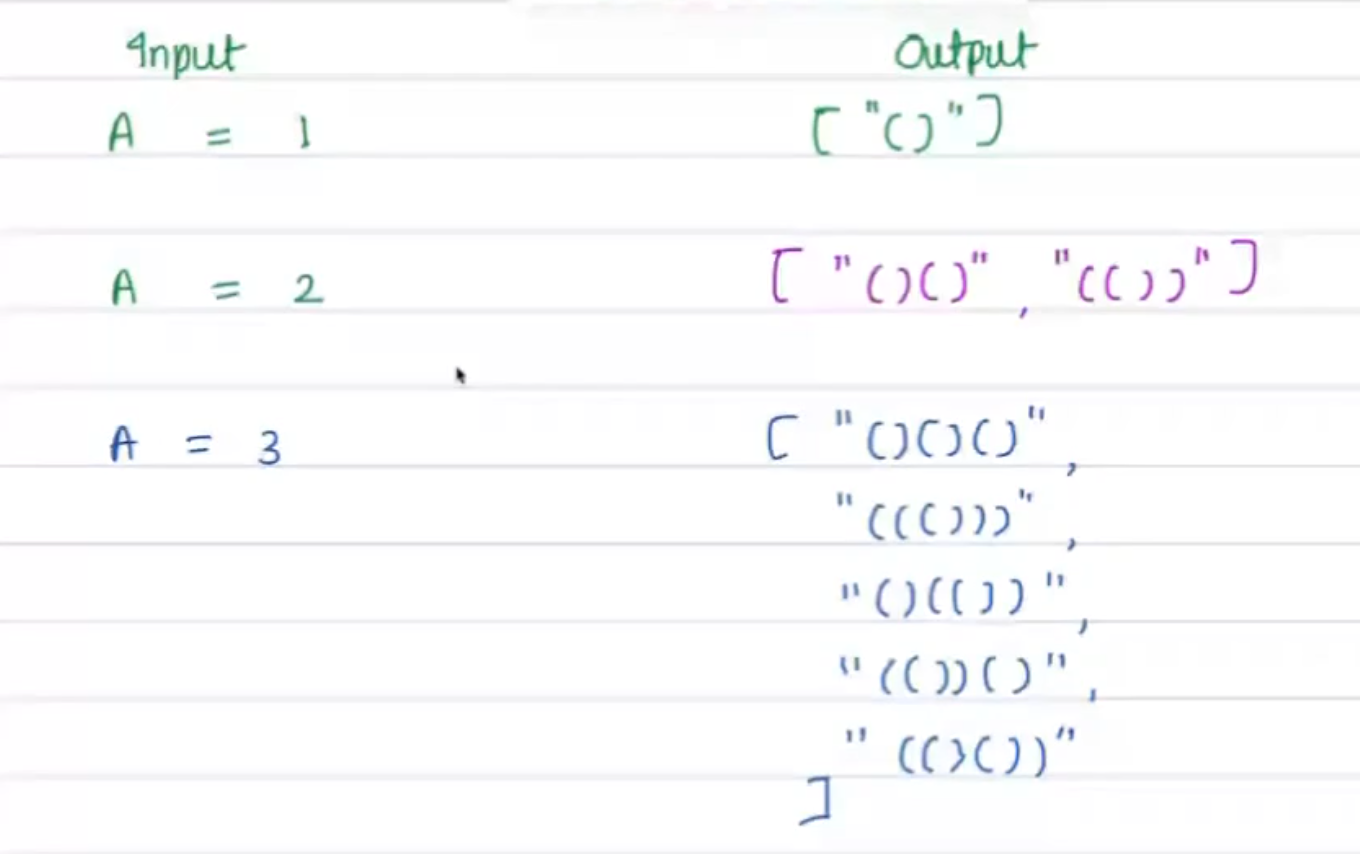 Input Output
A = 1 ["()"]
A = 2 ["()()", "(())"]
A = 3 ["()()()",
"((()))",
"()(())",
"(())()",
"(()())"
]